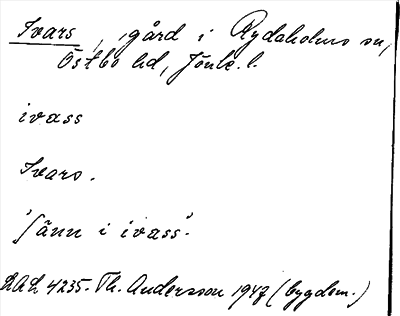 Ivars, gård i Rydaholms sn,
Östbo hd, Jönk. l.
ivass
Ivars.
'Jänn i ivass'.
LAL 4235. Th. Andersson 1947 (bygdem.)